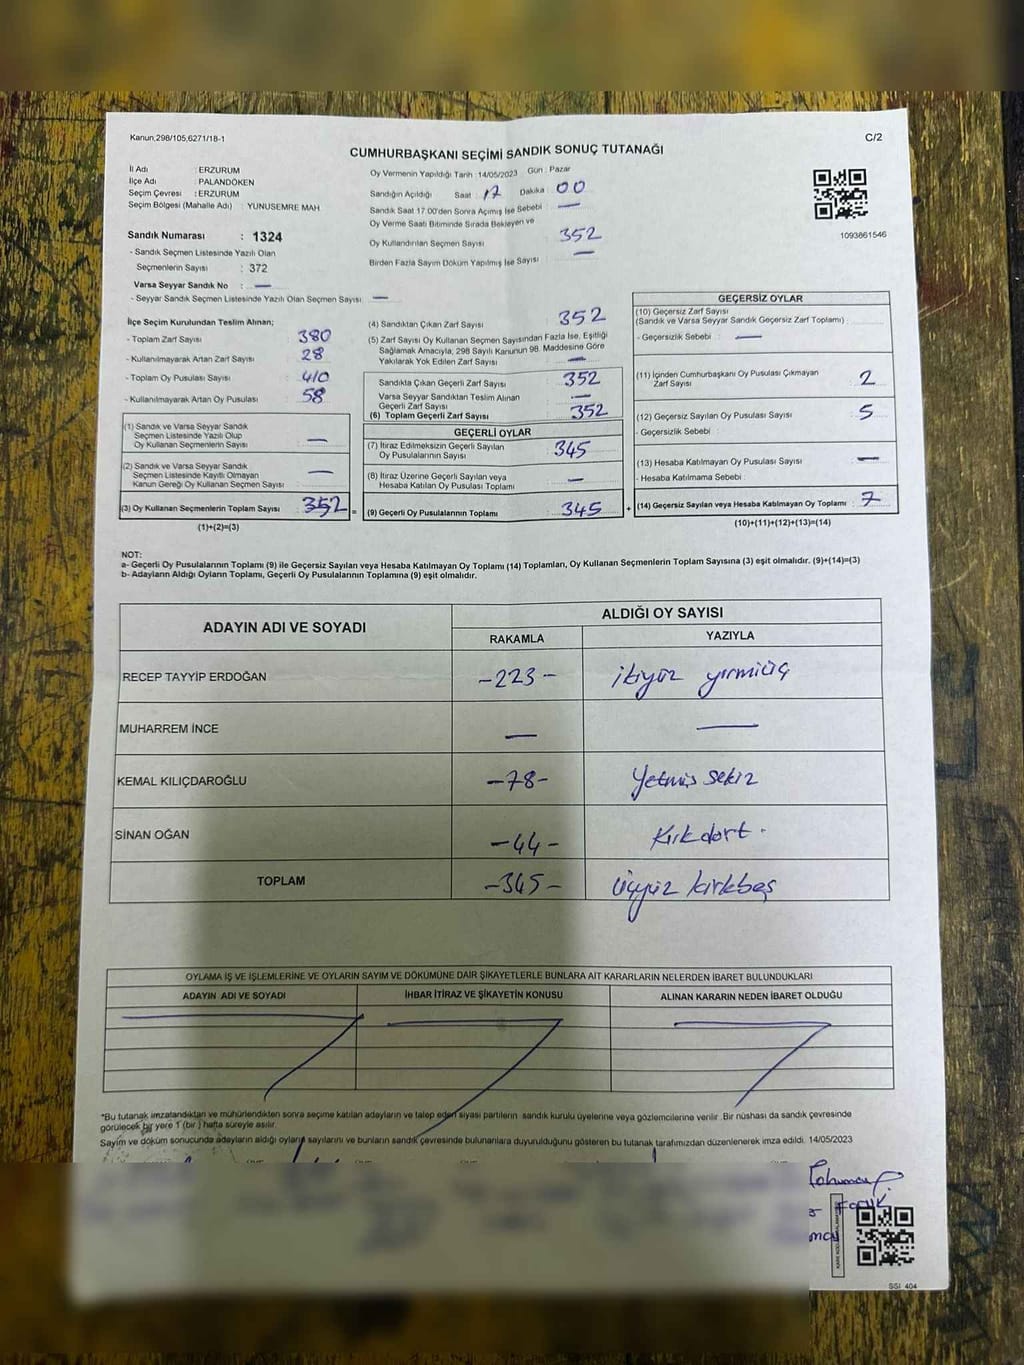 Kanun,298/105,6271/18-1
C/2
CUMHURBAŞKANI SEÇİMİ SANDIK SONUÇ TUTANAĞI
İl Adı : ERZURUM
İlçe Adı : PALANDÖKEN
Seçim Çevresi : ERZURUM
Seçim Bölgesi (Mahalle Adı) : YUNUSEMRE MAH
Sandık Numarası : 1324
- Sandık Seçmen Listesinde Yazılı Olan
Seçmenlerin Sayısı : 372
Varsa Seyyar Sandık No : —
- Seyyar Sandık Seçmen Listesinde Yazılı Olan Seçmen Sayısı : —
Oy Vermenin Yapıldığı Tarih :14/05/2023 Gün : Pazar
Sandığın Açıldığı Saat : 17 Dakika : 00
Sandık Saat 17.00'den Sonra Açılmış İse Sebebi : —
Oy Verme Saati Bitiminde Sırada Bekleyen ve
Oy Kullandırılan Seçmen Sayısı : 352
Birden Fazla Sayım Döküm Yapılmış İse Sayısı : —
1093861546
İlçe Seçim Kurulundan Teslim Alınan;
- Toplam Zarf Sayısı : 380
- Kullanılmayarak Artan Zarf Sayısı : 28
- Toplam Oy Pusulası Sayısı : 410
- Kullanılmayarak Artan Oy Pusulası : 58
(1) Sandık ve Varsa Seyyar Sandık
Seçmen Listesinde Yazılı Olup
Oy Kullanan Seçmenlerin Sayısı : —
(2) Sandık ve Varsa Seyyar Sandık
Seçmen Listesinde Kayıtlı Olmayan
Kanun Gereği Oy Kullanan Seçmen Sayısı : —
(3) Oy Kullanan Seçmenlerin Toplam Sayısı : 352 =
(1)+(2)=(3)
(4) Sandıktan Çıkan Zarf Sayısı : 352
(5) Zarf Sayısı Oy Kullanan Seçmen Sayısından Fazla İse, Eşitliği
Sağlamak Amacıyla; 298 Sayılı Kanunun 98. Maddesine Göre
Yakılarak Yok Edilen Zarf Sayısı : —
Sandıkta Çıkan Geçerli Zarf Sayısı : 352
Varsa Seyyar Sandıktan Teslim Alınan
Geçerli Zarf Sayısı : —
(6) Toplam Geçerli Zarf Sayısı : 352
GEÇERLİ OYLAR
(7) İtiraz Edilmeksizin Geçerli Sayılan
Oy Pusulalarının Sayısı : 345
(8) İtiraz Üzerine Geçerli Sayılan veya
Hesaba Katılan Oy Pusulası Toplamı : —
(9) Geçerli Oy Pusulalarının Toplamı : 345 +
GEÇERSİZ OYLAR
(10) Geçersiz Zarf Sayısı
(Sandık ve Varsa Seyyar Sandık Geçersiz Zarf Toplamı) :
- Geçersizlik Sebebi : —
(11) İçinden Cumhurbaşkanı Oy Pusulası Çıkmayan
Zarf Sayısı : 2
(12) Geçersiz Sayılan Oy Pusulası Sayısı : 5
- Geçersizlik Sebebi :
(13) Hesaba Katılmayan Oy Pusulası Sayısı : —
- Hesaba Katılmama Sebebi :
(14) Geçersiz Sayılan veya Hesaba Katılmayan Oy Toplamı : 7
(10)+(11)+(12)+(13)=(14)
NOT:
a- Geçerli Oy Pusulalarının Toplamı (9) ile Geçersiz Sayılan veya Hesaba Katılmayan Oy Toplamı (14) Toplamları, Oy Kullanan Seçmenlerin Toplam Sayısına (3) eşit olmalıdır. (9)+(14)=(3)
b- Adayların Aldığı Oyların Toplamı, Geçerli Oy Pusulalarının Toplamına (9) eşit olmalıdır.
ADAYIN ADI VE SOYADI ALDIĞI OY SAYISI
RAKAMLA YAZIYLA
RECEP TAYYİP ERDOĞAN -223- ikiyüz yirmiüç
MUHARREM İNCE — —
KEMAL KILIÇDAROĞLU -78- Yetmiş sekiz
SİNAN OĞAN -44- Kırkdört.
TOPLAM -345- Üçyüz kırkbeş
OYLAMA İŞ VE İŞLEMLERİNE VE OYLARIN SAYIM VE DÖKÜMÜNE DAİR ŞİKAYETLERLE BUNLARA AİT KARARLARIN NELERDEN İBARET BULUNDUKLARI
ADAYIN ADI VE SOYADI İHBAR İTİRAZ VE ŞİKAYETİN KONUSU ALINAN KARARIN NEDEN İBARET OLDUĞU
*Bu tutanak imzalandıktan ve mühürlendikten sonra seçime katılan adayların ve talep eden siyasi partilerin sandık kurulu üyelerine veya gözlemcilerine verilir. Bir nüshası da sandık çevresinde
görülecek bir yere 1 (bir) hafta süreyle asılır.
Sayım ve döküm sonucunda adayların aldığı oyların sayılarını ve bunların sandık çevresinde bulunanlara duyurulduğunu gösteren bu tutanak tarafımızdan düzenlenerek imza edildi. 14/05/2023
SSI_404